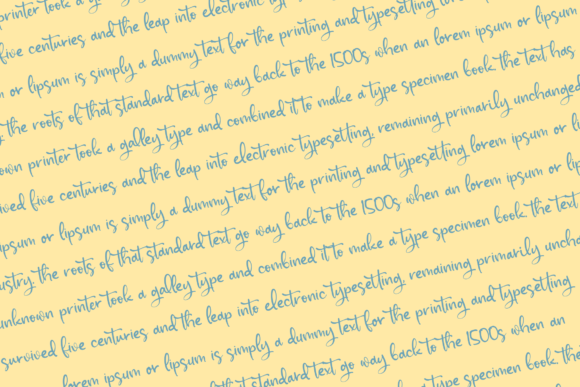 printer took a galley
five centuries and the leap into electronic
or lipsum is simply a dummy text for the printing and typesetting
the roots of that standard text go way back to the 1500s when an lorem ipsum or lipsum
printer took a galley type and combined it to make a type specimen book the text has
five centuries and the leap into electronic typesetting, remaining primarily unchanged
ipsum or lipsum is simply a dummy text for the printing and typesetting lorem ipsum or
the roots of that standard text go way back to the 1500s when an lorem ipsum or lipsum
unknown printer took a galley type and combined it to make a type specimen book the text
survived five centuries and the leap into electronic typesetting, remaining primarily
lorem ipsum or lipsum is simply a dummy text for the printing and typesetting
roots of that standard text go way back to the 1500s when an
type specimen book the